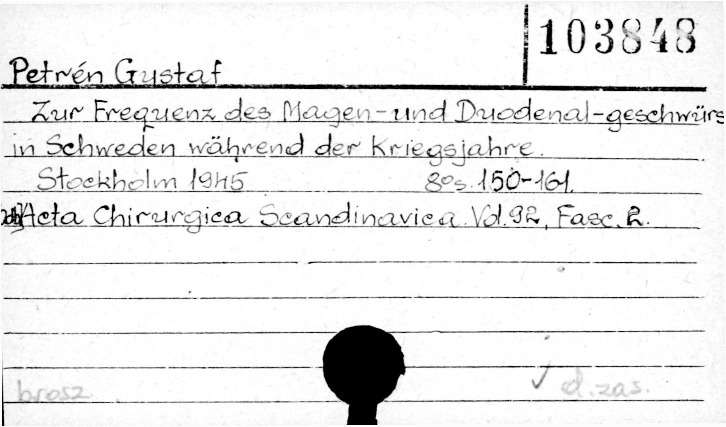 103848
Petrén Gustaf
Zur Frequenz des Magen-und Duodenal-geschwürs
in Schweden während der Kriegsjahre.
Stockholm 1945 8º s. 150-161.
Acta Chirurgica Scandinavica. Vol. 92, Fasc. 2.
brosz. ✓ d. zas.